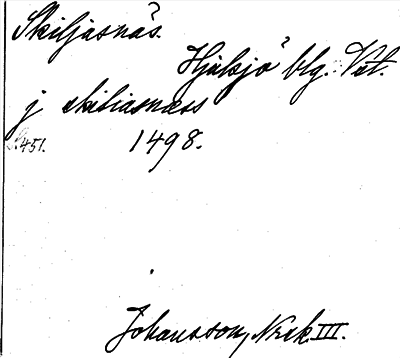 Skiljasnäs.
Hjulsjö blg. Vst.
j skiliasnæss
1498.
S. 451.
Johansson, Nrik III.